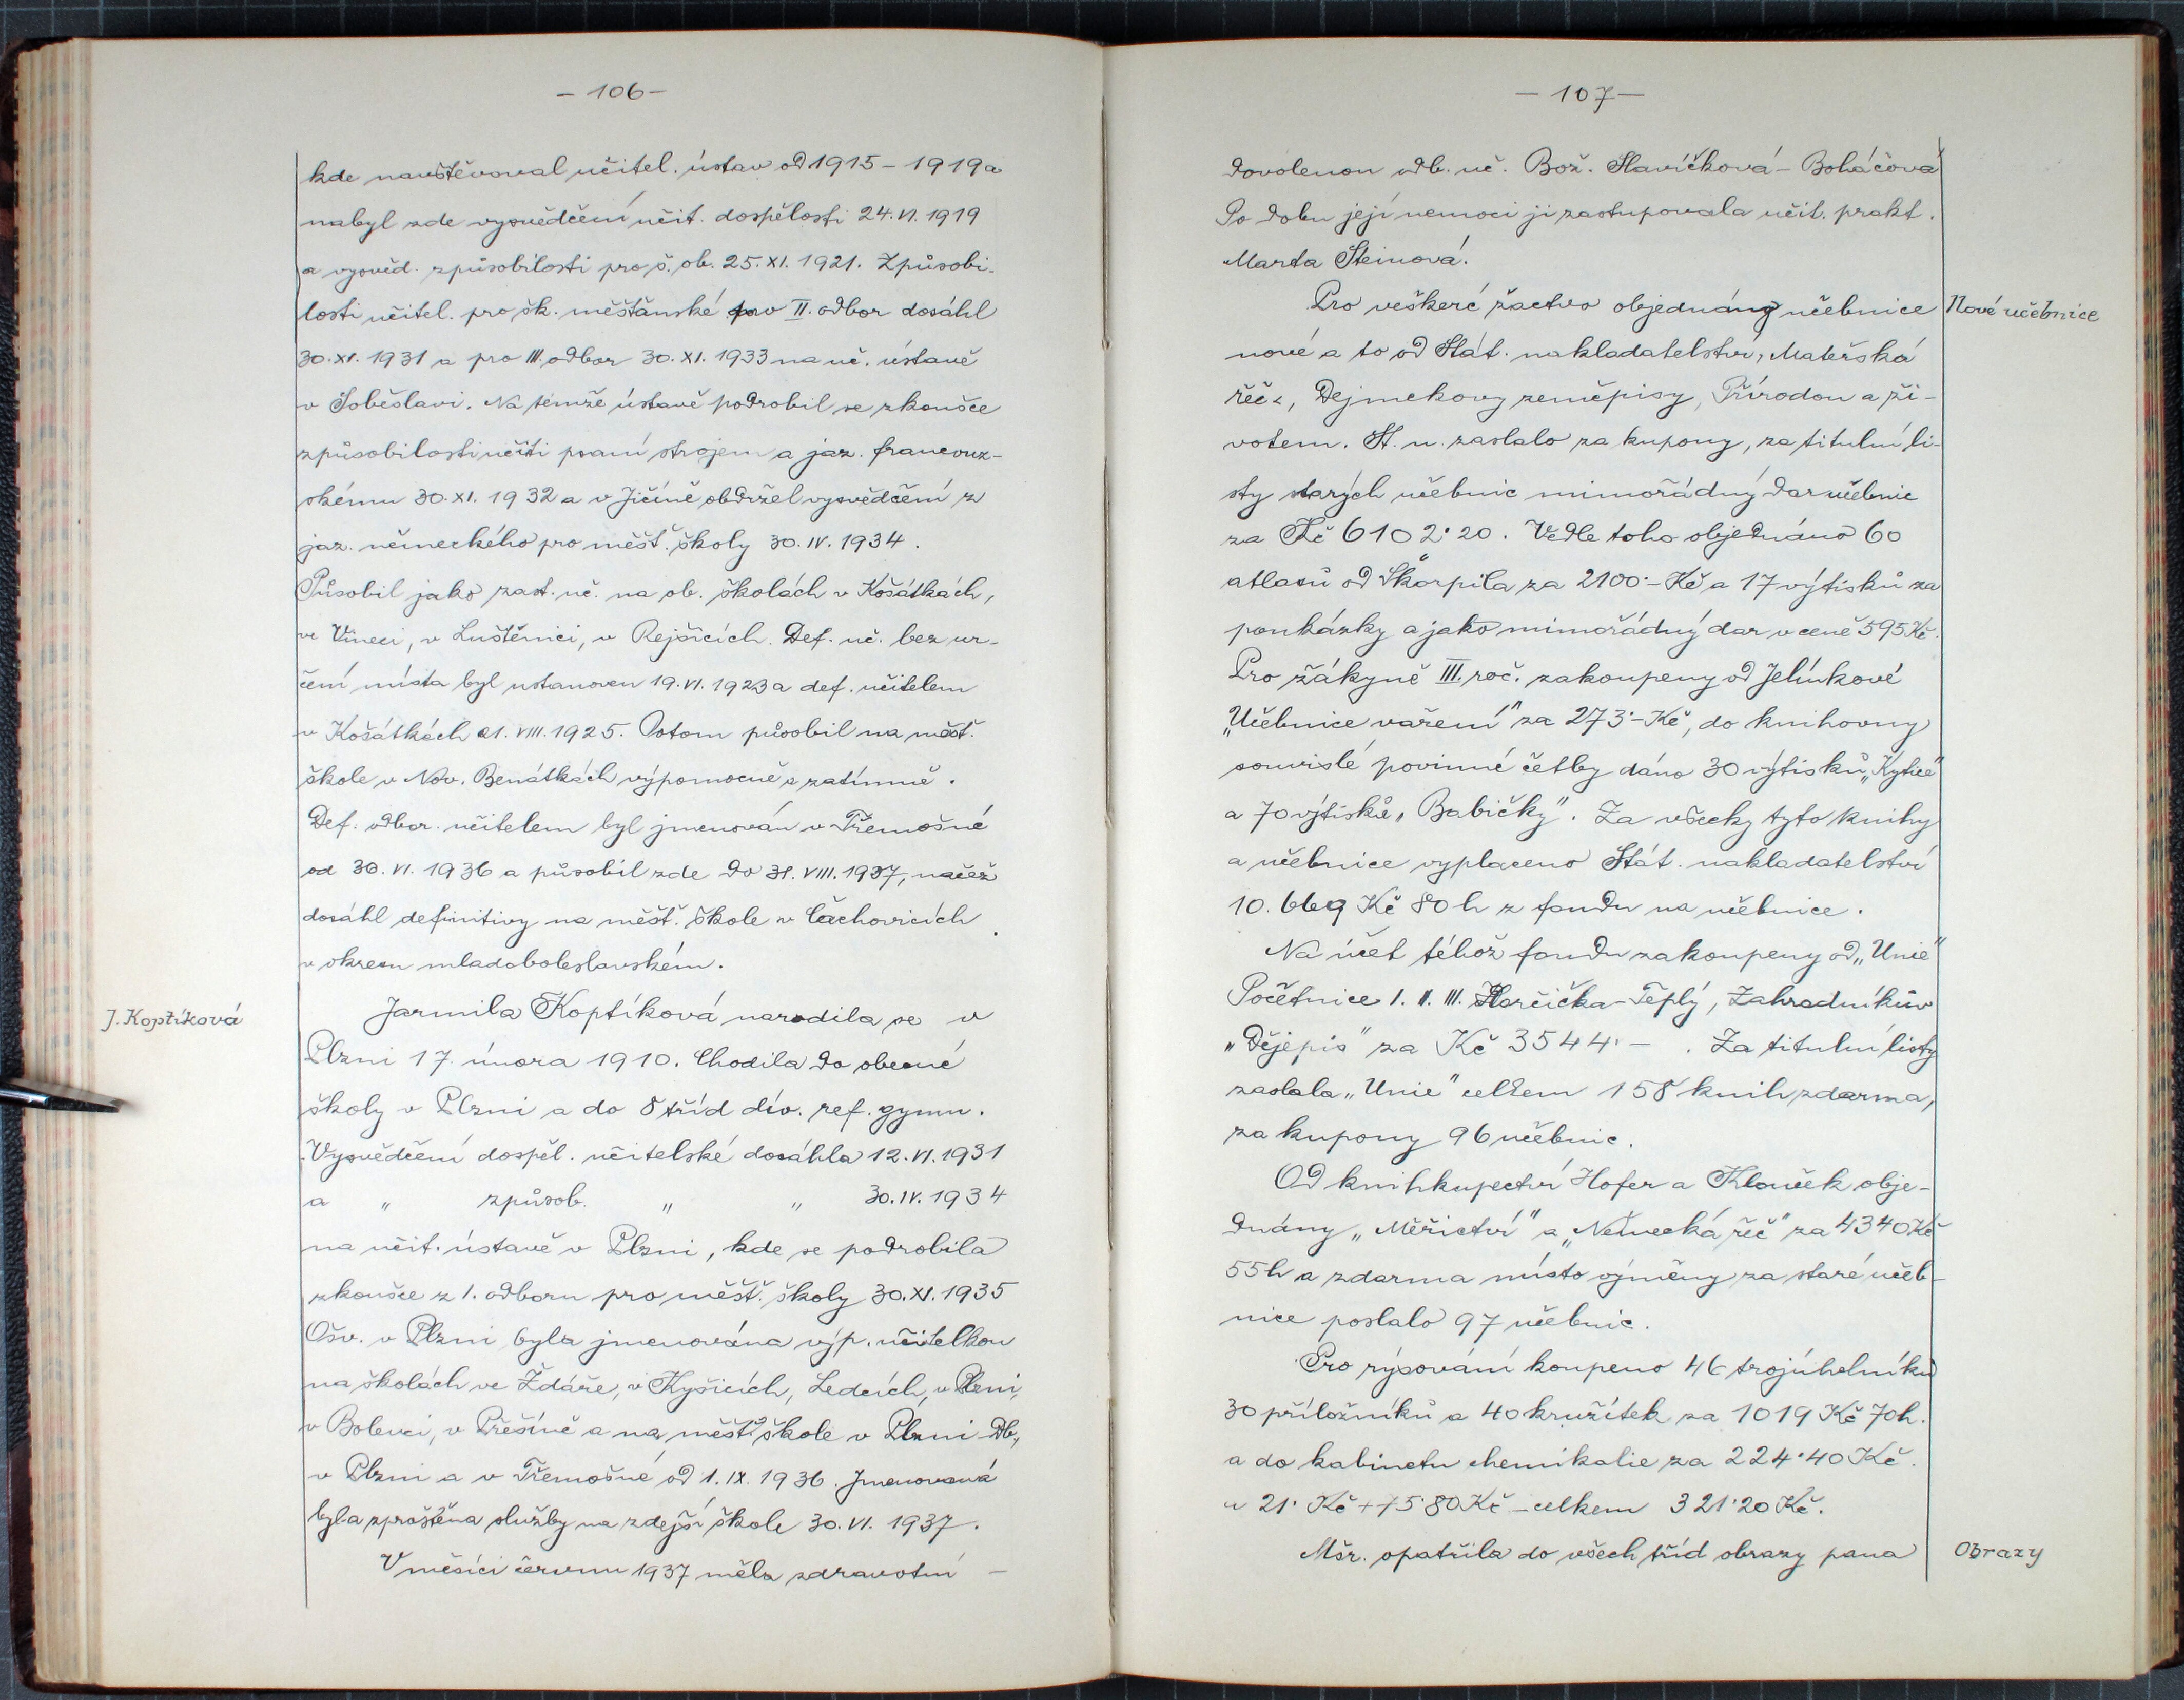 - 106 -
kde navštěvoval učitel. ústav od 1915 - 1919 a
nabyl zde vysvědčení učit. dospělosti 24. VI. 1919
a vysvěd. způsobilosti pro š. ob. 25. XI. 1921. Způsobi-
losti učitel. pro šk. měšťanské pro II. odbor dosáhl
30. XI. 1931 a pro III. odbor 30. XI. 1933 na uč. ústavě
v Soběslavi. Na témže ústavě podrobil se zkoušce
způsobilosti učiti psaní strojem a jaz. francouz-
skému 30. XI. 1932 a v Jičíně obdržel vysvědčení z
jaz. německého pro měšť. školy 30. IV. 1934.
Působil jako zast. uč. na ob. školách v Košátkách,
ve Vinci, v Luštěnici, v Rejšicích. Def. uč. bez ur-
čení místa byl ustanoven 19. VI. 1923 a def. učitelem
v Košátkách 21. VIII. 1925. Potom působil na měšť.
škole v Nov. Benátkách výpomocně a zatímně.
Def. odbor. učitelem byl jmenován v Třemošné
od 30. VI. 1936 a působil zde do 31. VIII. 1937, načež
dosáhl definitivy na měšť. škole v Čachovicích
v okresu mladoboleslavském.
J. Koptíková
Jarmila Koptíková narodila se v
Plzni 17. února 1910. Chodila do obecné
školy v Plzni a do 8 tříd dív. ref. gymn.
Vysvědčení dospěl. učitelské dosáhla 12. VI. 1931
a " způsob. " " 30. IV. 1934
na učit. ústavě v Plzni, kde se podrobila
zkoušce z I. odboru pro měšť. školy 30. XI. 1935
Ošv. v Plzni byla jmenována výp. učitelkou
na školách ve Ždáře, v Kyšicích, Ledcích, v Plzni,
v Bolevci, v Přešíně a na měšť. škole v Plzni Db.,
v Plzni a v Třemošné od 1. IX. 1936. Jmenovaná
byla zproštěna služby na zdejší škole 30. VI. 1937.
V měsíci červnu 1937 měla zdravotní -
- 107 -
dovolenou odb. uč. Bož. Slavíčková - Boháčová
Po dobu její nemoci ji zastupovala učit. prakt.
Marta Steinová.
Pro veškeré žactvo objednány učebnice
Nové učebnice
nové a to od Stát. nakladatelství, Mateřská
řeč, Dejmekovy zeměpisy, Přírodou a ži-
votem. St. n. zaslalo za kupony, za titulní li-
sty starých učebnic mimořádný dar učebnic
za Kč 6102·20. Vedle toho objednáno 60
atlasů od Škorpila za 2100·- Kč a 17 výtisků za
poukázky a jako mimořádný dar v ceně 595 Kč.
Pro žákyně III. roč. zakoupeny od Jelínkové
„Učebnice vaření" za 273·- Kč, do knihovny
souvislé povinné četby dáno 30 výtisků „Kytice"
a 70 výtisků „Babičky". Za všecky tyto knihy
a učebnice vyplaceno Stát. nakladatelství
10.669 Kč 80 h z fondu na učebnice.
Na účet téhož fondu zakoupeny od „Unie"
Početnice I. II. III. Horčička-Teplý, Zahradníkův
„Dějepis" za Kč 3544·- . Za titulní listy
zaslala „Unie" celkem 158 knih zdarma,
za kupony 96 učebnic.
Od knihkupectví Hofer a Klouček obje-
dnány „Měřictví" a „Německá řeč" za 4340 Kč
55 h a zdarma místo výměny za staré učeb-
nice poslalo 97 učebnic.
Pro rýsování koupeno 46 trojúhelníků
30 příložníků a 40 kružítek za 1019 Kč 70 h.
a do kabinetu chemikalie za 224·40 Kč.
a 21· Kč + 75·80 Kč - celkem 321·20 Kč.
Mšr. opatřila do všech tříd obrazy pana
Obrazy